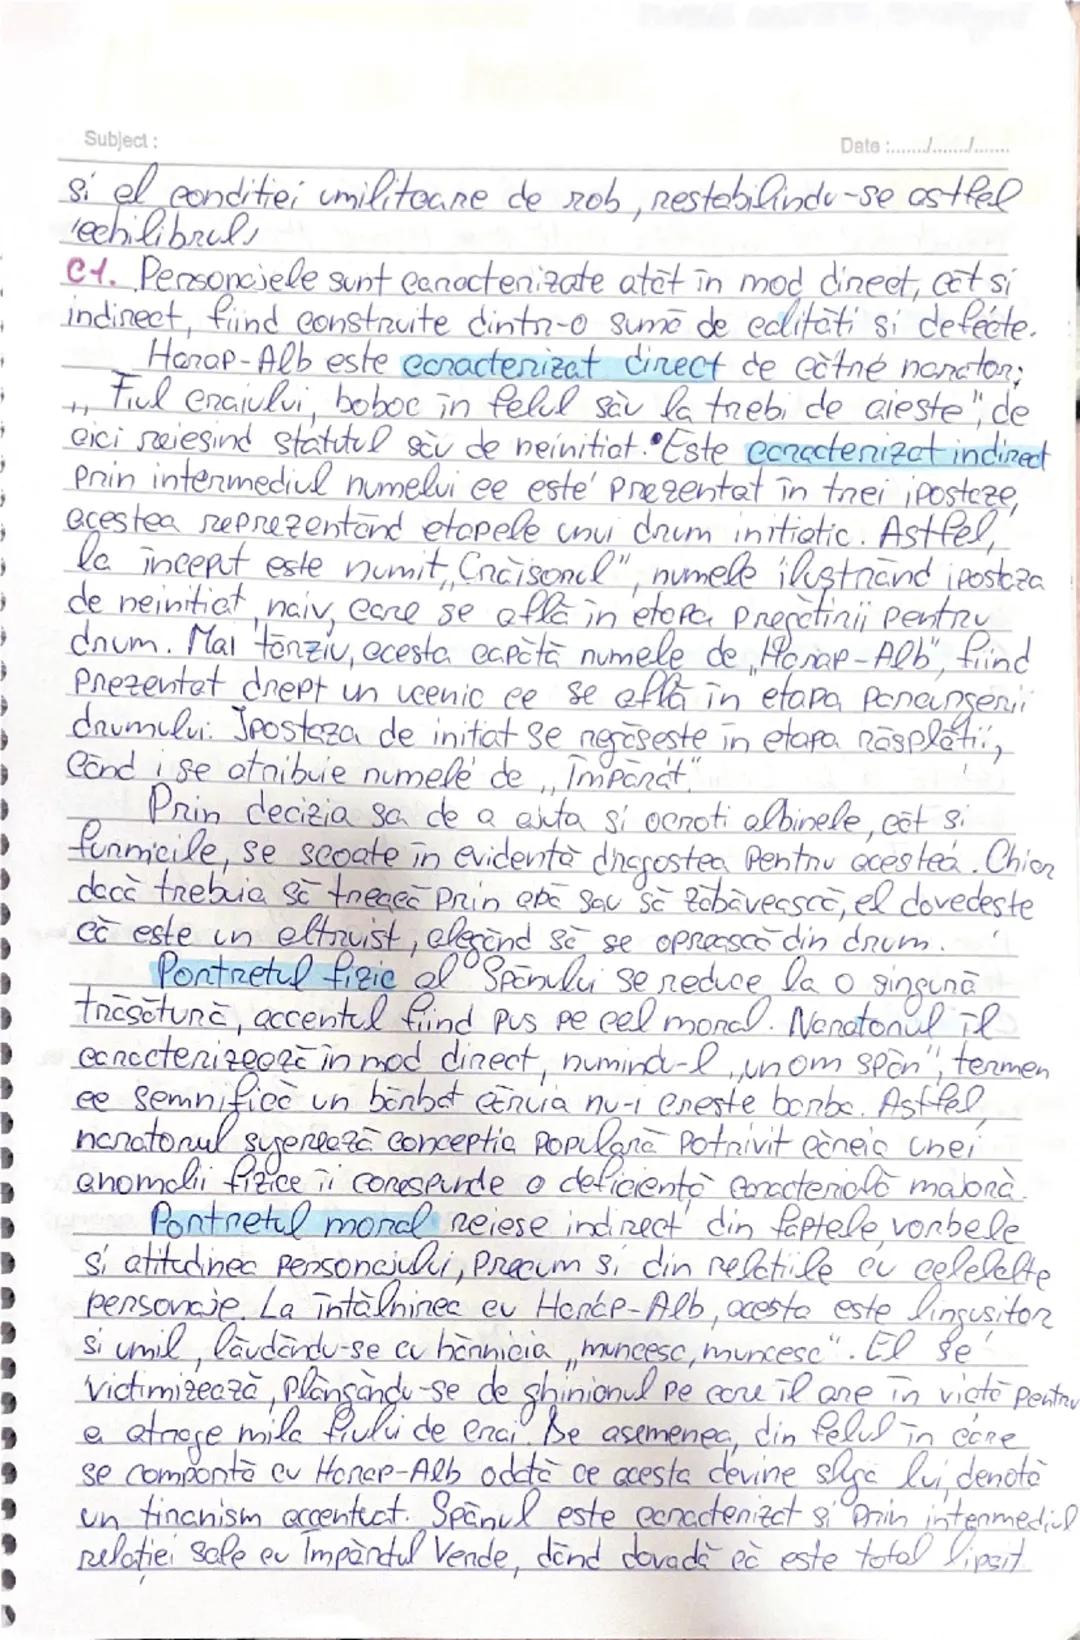 Subject :
Date :......./......./.......
și el condiției umilitoare de rob, restabilindu-se astfel
echilibrul.
C1. Personajele sunt caracterizate atât în mod direct, cât și
indirect, fiind construite dintr-o sumă de calități și defecte.
Harap-Alb este caracterizat direct de către narator:
„Fiul craiului, boboc în felul său la trebi de aieste", de
aici reieșind statutul său de neinițiat. Este caracterizat indirect
prin intermediul numelui ce este prezentat în trei ipostaze,
acestea reprezentând etapele unui drum inițiatic. Astfel,
la început este numit „Crăișorul", numele ilustrând ipostaza
de neinițiat, naiv, care se află în etapa pregătirii pentru
drum. Mai târziu, acesta capătă numele de „Harap-Alb", fiind
prezentat drept un ucenic ce se află în etapa parcurgerii
drumului. Ipostaza de inițat se regăsește în etapa răsplății,
când i se atribuie numele de „Împărat."
Prin decizia sa de a ajuta și ocroti albinele, cât și
furnicile, se scoate în evidență dragostea pentru acestea. Chiar
dacă trebuia să treacă prin apă sau să zăbăvească, el dovedește
că este un altruist, alegând să se oprească din drum.
Portretul fizic al Spânului se reduce la o singură
trăsătură, accentul fiind pus pe cel moral. Naratorul îl
caracterizează în mod direct, numindu-l „un om spân", termen
ce semnifică un bărbat căruia nu-i crește barba. Astfel,
naratorul sugerează concepția populară potrivit căreia unei
anomalii fizice îi corespunde o deficiență caracterială majoră.
Portretul moral reiese indirect din faptele, vorbele
și atitudinea personajului, precum și din relațiile cu celelalte
personaje. La întâlnirea cu Harap-Alb, acesta este lingușitor
și umil, lăudându-se cu hărnicia „muncesc, muncesc". El se
victimizează, plângându-se de ghinionul pe care îl are în viață pentru
a atrage mila fiului de crai. De asemenea, din felul în care
se comportă cu Harap-Alb odată ce acesta devine sluga lui, denotă
un tiranism accentuat. Spânul este caracterizat și prin intermediul
relației sale cu Împăratul Verde, dând dovadă că este total lipsit